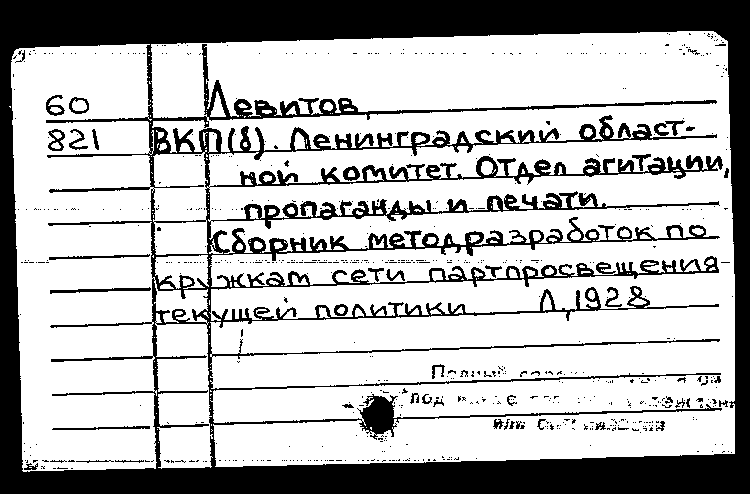 60 Левитов,
821 ВКП(б). Ленинградский област-
ной комитет. Отдел агитации,
пропаганды и печати.
Сборник методразработок по
кружкам сети партпросвещения
текущей политики. Л, 1928
Полный
под
или